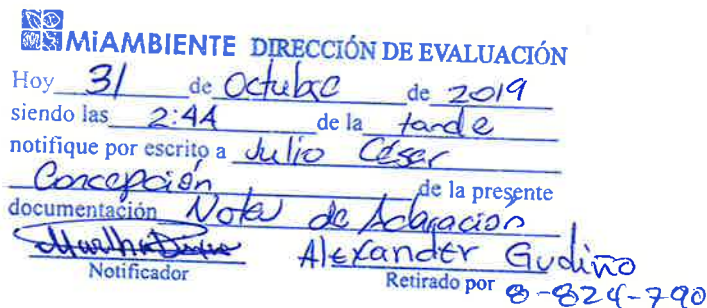 MiAMBIENTE DIRECCIÓN DE EVALUACIÓN
Hoy 31 de Octubre de 2019
siendo las 2:44 de la tarde
notifique por escrito a Julio César
Concepción de la presente
documentación Nota de Aclaración
Alexander Gudiño
Notificador Retirado por 8-824-790